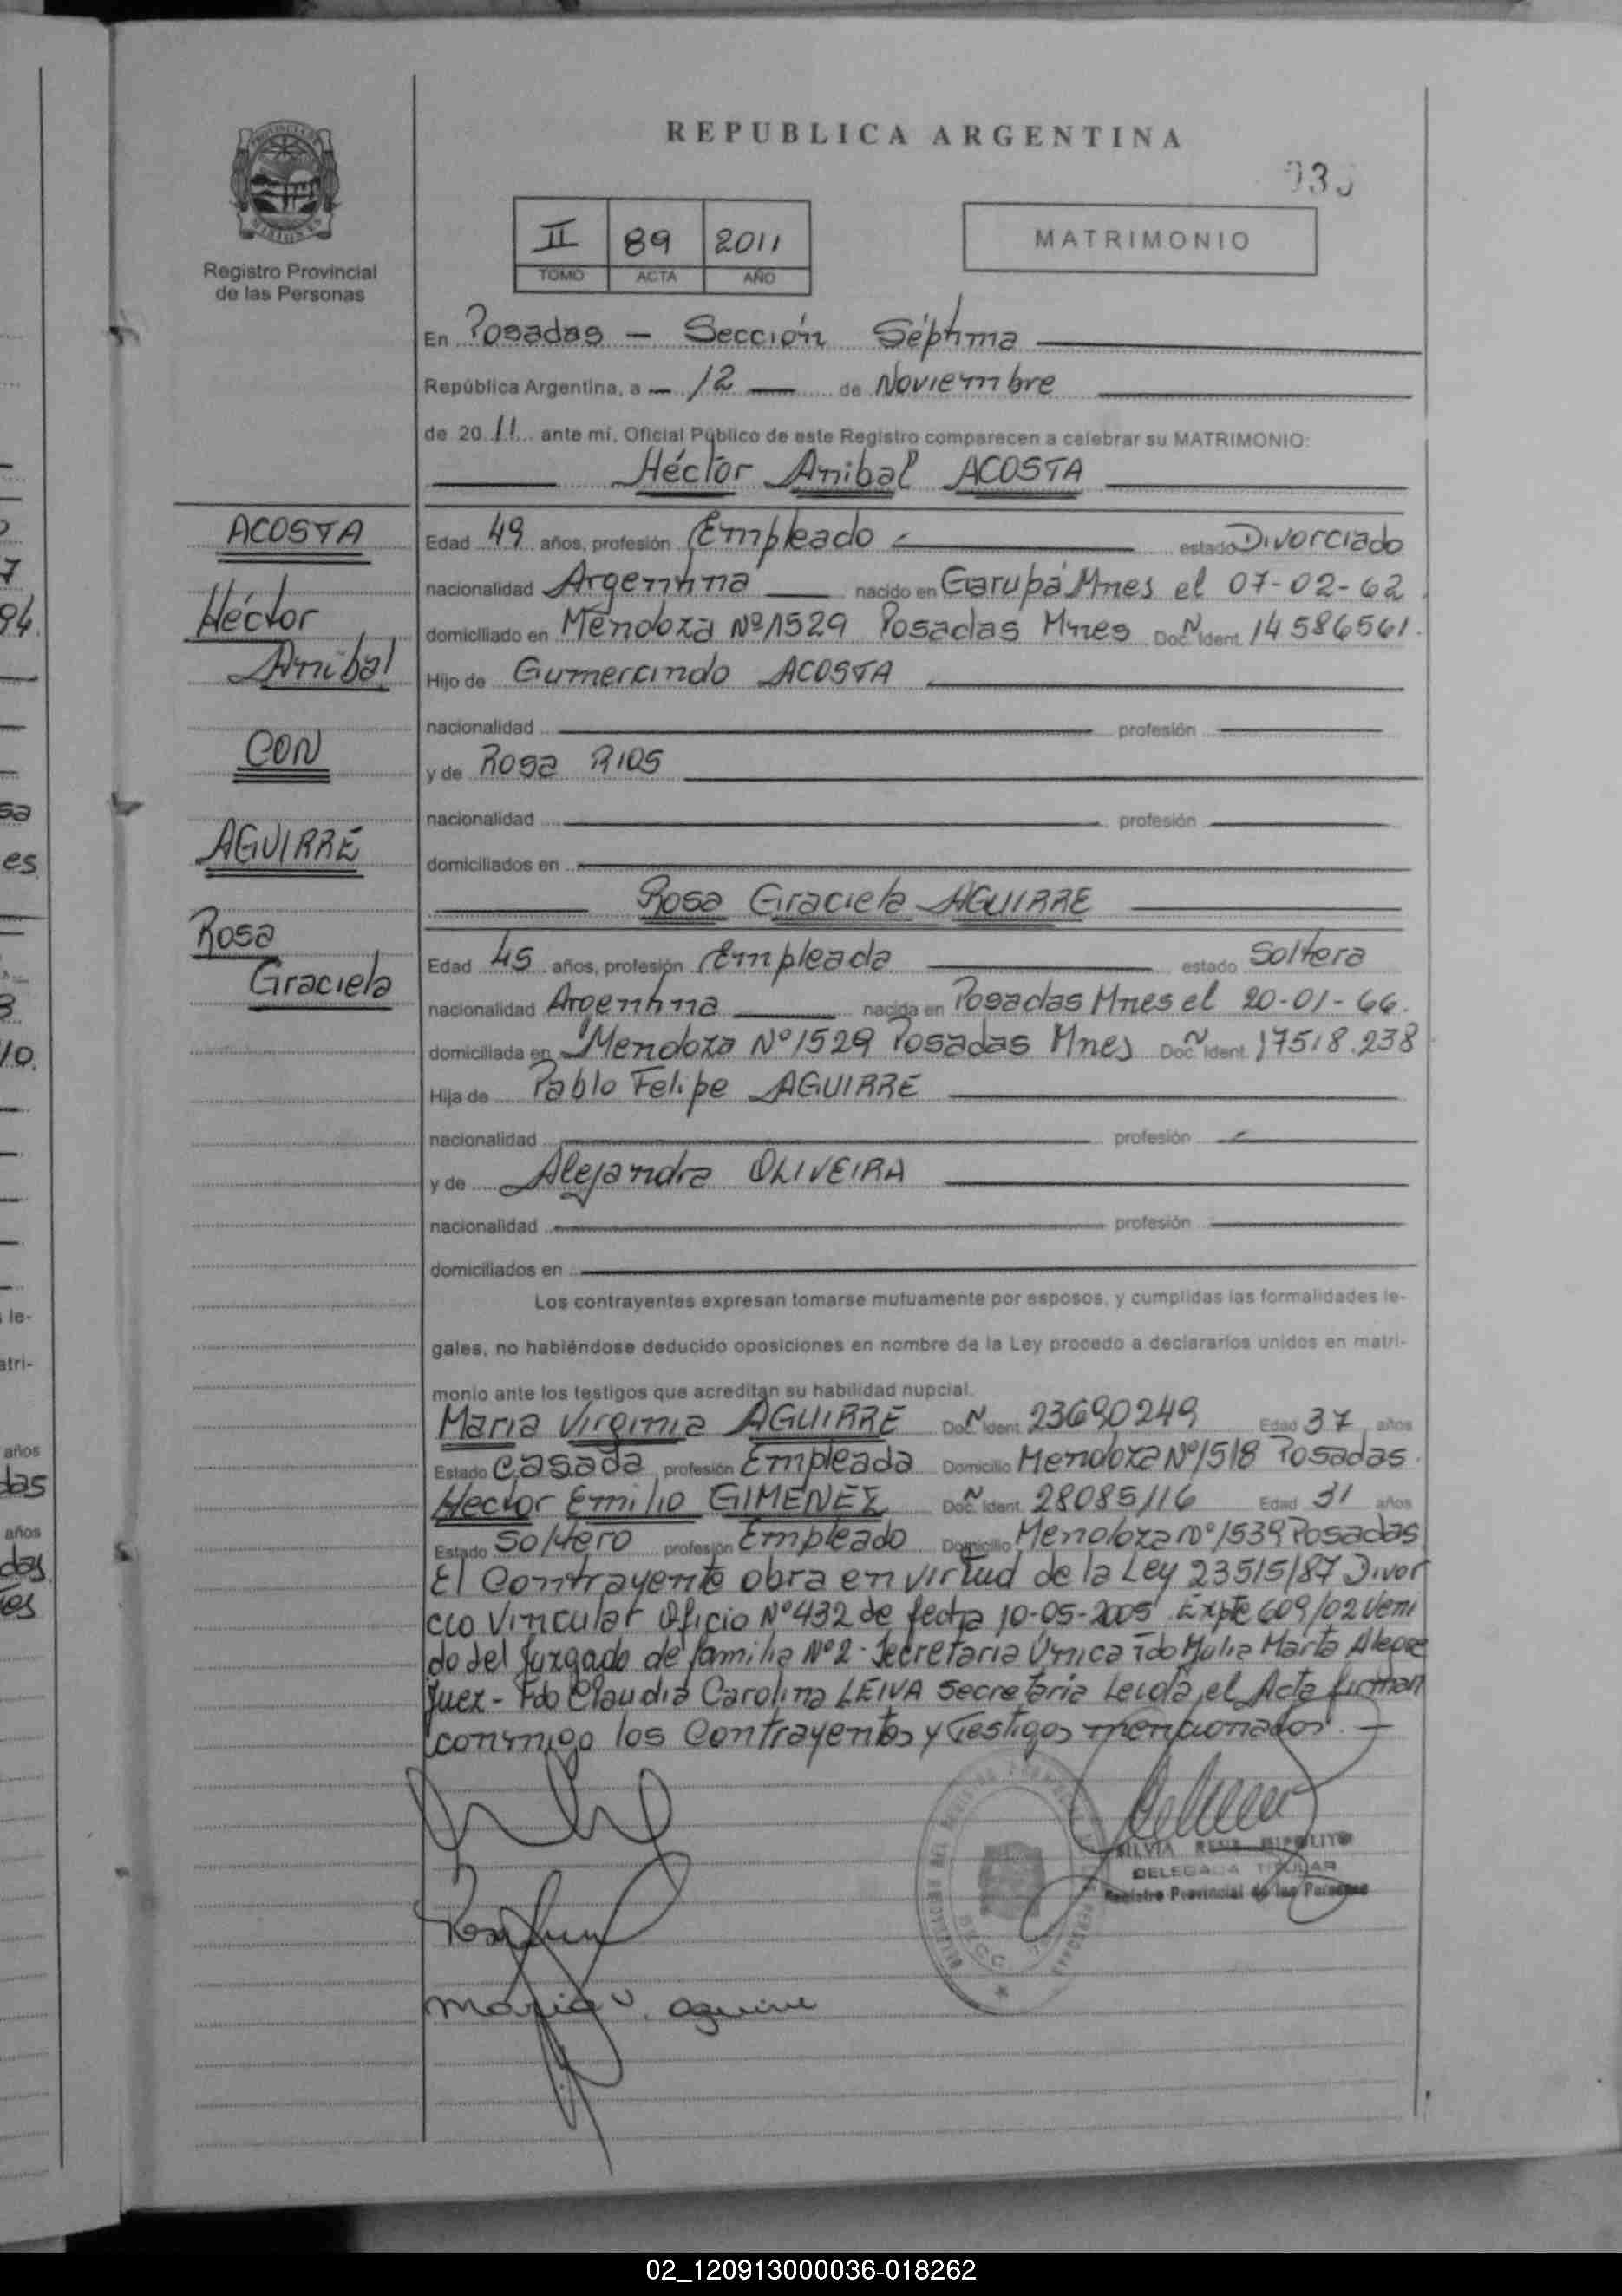 REPUBLICA ARGENTINA
Registro Provincial
de las Personas
II 89 2011
TOMO ACTA AÑO
MATRIMONIO
En Posadas - Sección Séptima
República Argentina, a - 12 - de Noviembre
de 2011 ante mí, Oficial Público de este Registro comparecen a celebrar su MATRIMONIO:
Héctor Anibal ACOSTA
ACOSTA
Héctor
Anibal
CON
AGUIRRE
Rosa
Graciela
Edad 49 años, profesión Empleado estado Divorciado
nacionalidad Argentina nacido en Garupá Mnes el 07-02-62
domiciliado en Mendoza Nº 1529 Posadas Mnes Doc. Ident. 14586561.
Hijo de Gumercindo ACOSTA
nacionalidad profesión
y de Rosa RIOS
nacionalidad profesión
domiciliados en
Rosa Graciela AGUIRRE
Edad 45 años, profesión Empleada estado Soltera
nacionalidad Argentina nacida en Posadas Mnes el 20-01-66.
domiciliada en Mendoza Nº 1529 Posadas Mnes Doc. Ident. 17518.238
Hija de Pablo Felipe AGUIRRE
nacionalidad profesión
y de Alejandra OLIVEIRA
nacionalidad profesión
domiciliados en
Los contrayentes expresan tomarse mutuamente por esposos, y cumplidas las formalidades le-
gales, no habiéndose deducido oposiciones en nombre de la Ley procedo a declararlos unidos en matri-
monio ante los testigos que acreditan su habilidad nupcial.
Maria Virginia AGUIRRE Doc. Ident. 23690249 Edad 37 años
Estado Casada profesión Empleada Domicilio Mendoza Nº 1518 Posadas.
Hector Emilio GIMENEZ Doc. Ident. 28085116 Edad 31 años
Estado Soltero profesión Empleado Domicilio Mendoza Nº 1539 Posadas
El Contrayente obra en virtud de la Ley 23515/87 Divor
cio Vincular Oficio Nº 432 de fecha 10-05-2005 Expte 609/02 Veni
do del Juzgado de familia Nº 2 - Secretaria Única Fdo Julia Marta Alegre
Juez - Fdo Claudia Carolina LEIVA Secretaria Leida el Acta firman
conmigo los Contrayentes y Testigos mencionados.
SILVIA HIPOLITO
DELEGADA TITULAR
Registro Provincial de las Personas
Maria V. Aguirre
02_120913000036-018262